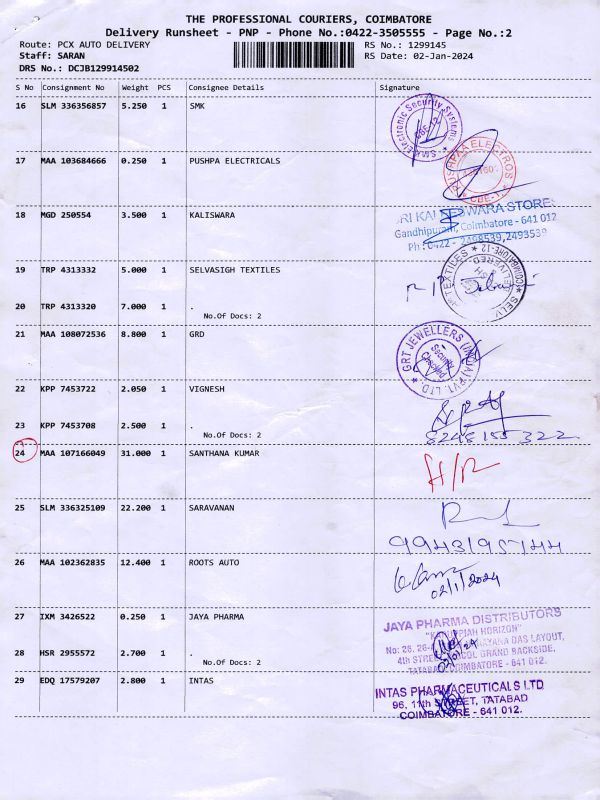 THE PROFESSIONAL COURIERS, COIMBATORE
Delivery Runsheet - PNP - Phone No.:0422-3505555 - Page No.:2
Route: PCX AUTO DELIVERY
RS No.: 1299145
Staff: SARAN
RS Date: 02-Jan-2024
DRS No.: DCJB129914502
S No Consignment No Weight PCS Consignee Details Signature
16 SLM 336356857 5.250 1 SMK
SMK Electronic Security Systems
CBE-12
17 MAA 103684666 0.250 1 PUSHPA ELECTRICALS
CBE-1
18 MGD 250554 3.500 1 KALISWARA
SRI KALEESWARA STORES
Gandhipuram, Coimbatore - 641 012
Ph : 0422 - 2498539, 2493539
19 TRP 4313332 5.000 1 SELVASIGH TEXTILES
TEXTILES
COIMBATORE-12
SELV
DELIVERED
20 TRP 4313320 7.000 1 .
No.Of Docs: 2
21 MAA 108072536 8.800 1 GRD
GRT JEWELLERS (INDIA) PVT. LTD.
Security
22 KPP 7453722 2.050 1 VIGNESH
23 KPP 7453708 2.500 1 .
8248155322
No.Of Docs: 2
24 MAA 107166049 31.000 1 SANTHANA KUMAR
H/R
25 SLM 336325109 22.200 1 SARAVANAN
26 MAA 102362835 12.400 1 ROOTS AUTO
02/1/2024
27 IXM 3426522 0.250 1 JAYA PHARMA
JAYA PHARMA DISTRIBUTORS
"KARUPPIAH HORIZON"
DAS LAYOUT,
28 HSR 2955572 2.700 1 .
4th STREET, GRAND BACKSIDE,
No.Of Docs: 2
TATABAD, COIMBATORE - 641 012.
29 EDQ 17579207 2.800 1 INTAS
INTAS PHARMACEUTICALS LTD
96, 11th STREET, TATABAD
COIMBATORE - 641 012.